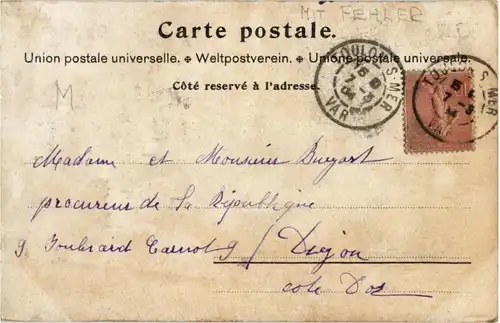 MIT FEHLER
Carte postale.
Union postale universelle. ✦ Weltpostverein. ✦ Unione postale universale.
Côté reservé à l'adresse.
M
TOULON S MER
VAR
Madame et Monsieur
procureur de la République
9 Boulevard Carnot 9 / Dijon
cote Dor